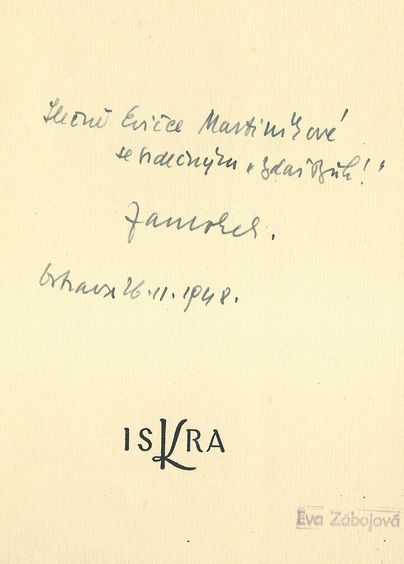 Slečně Evičce Martiníkové
se srdečným „Zdař Bůh!"
Jan
Ostrava 26.11.1948.
ISKRA
Eva Zábojová